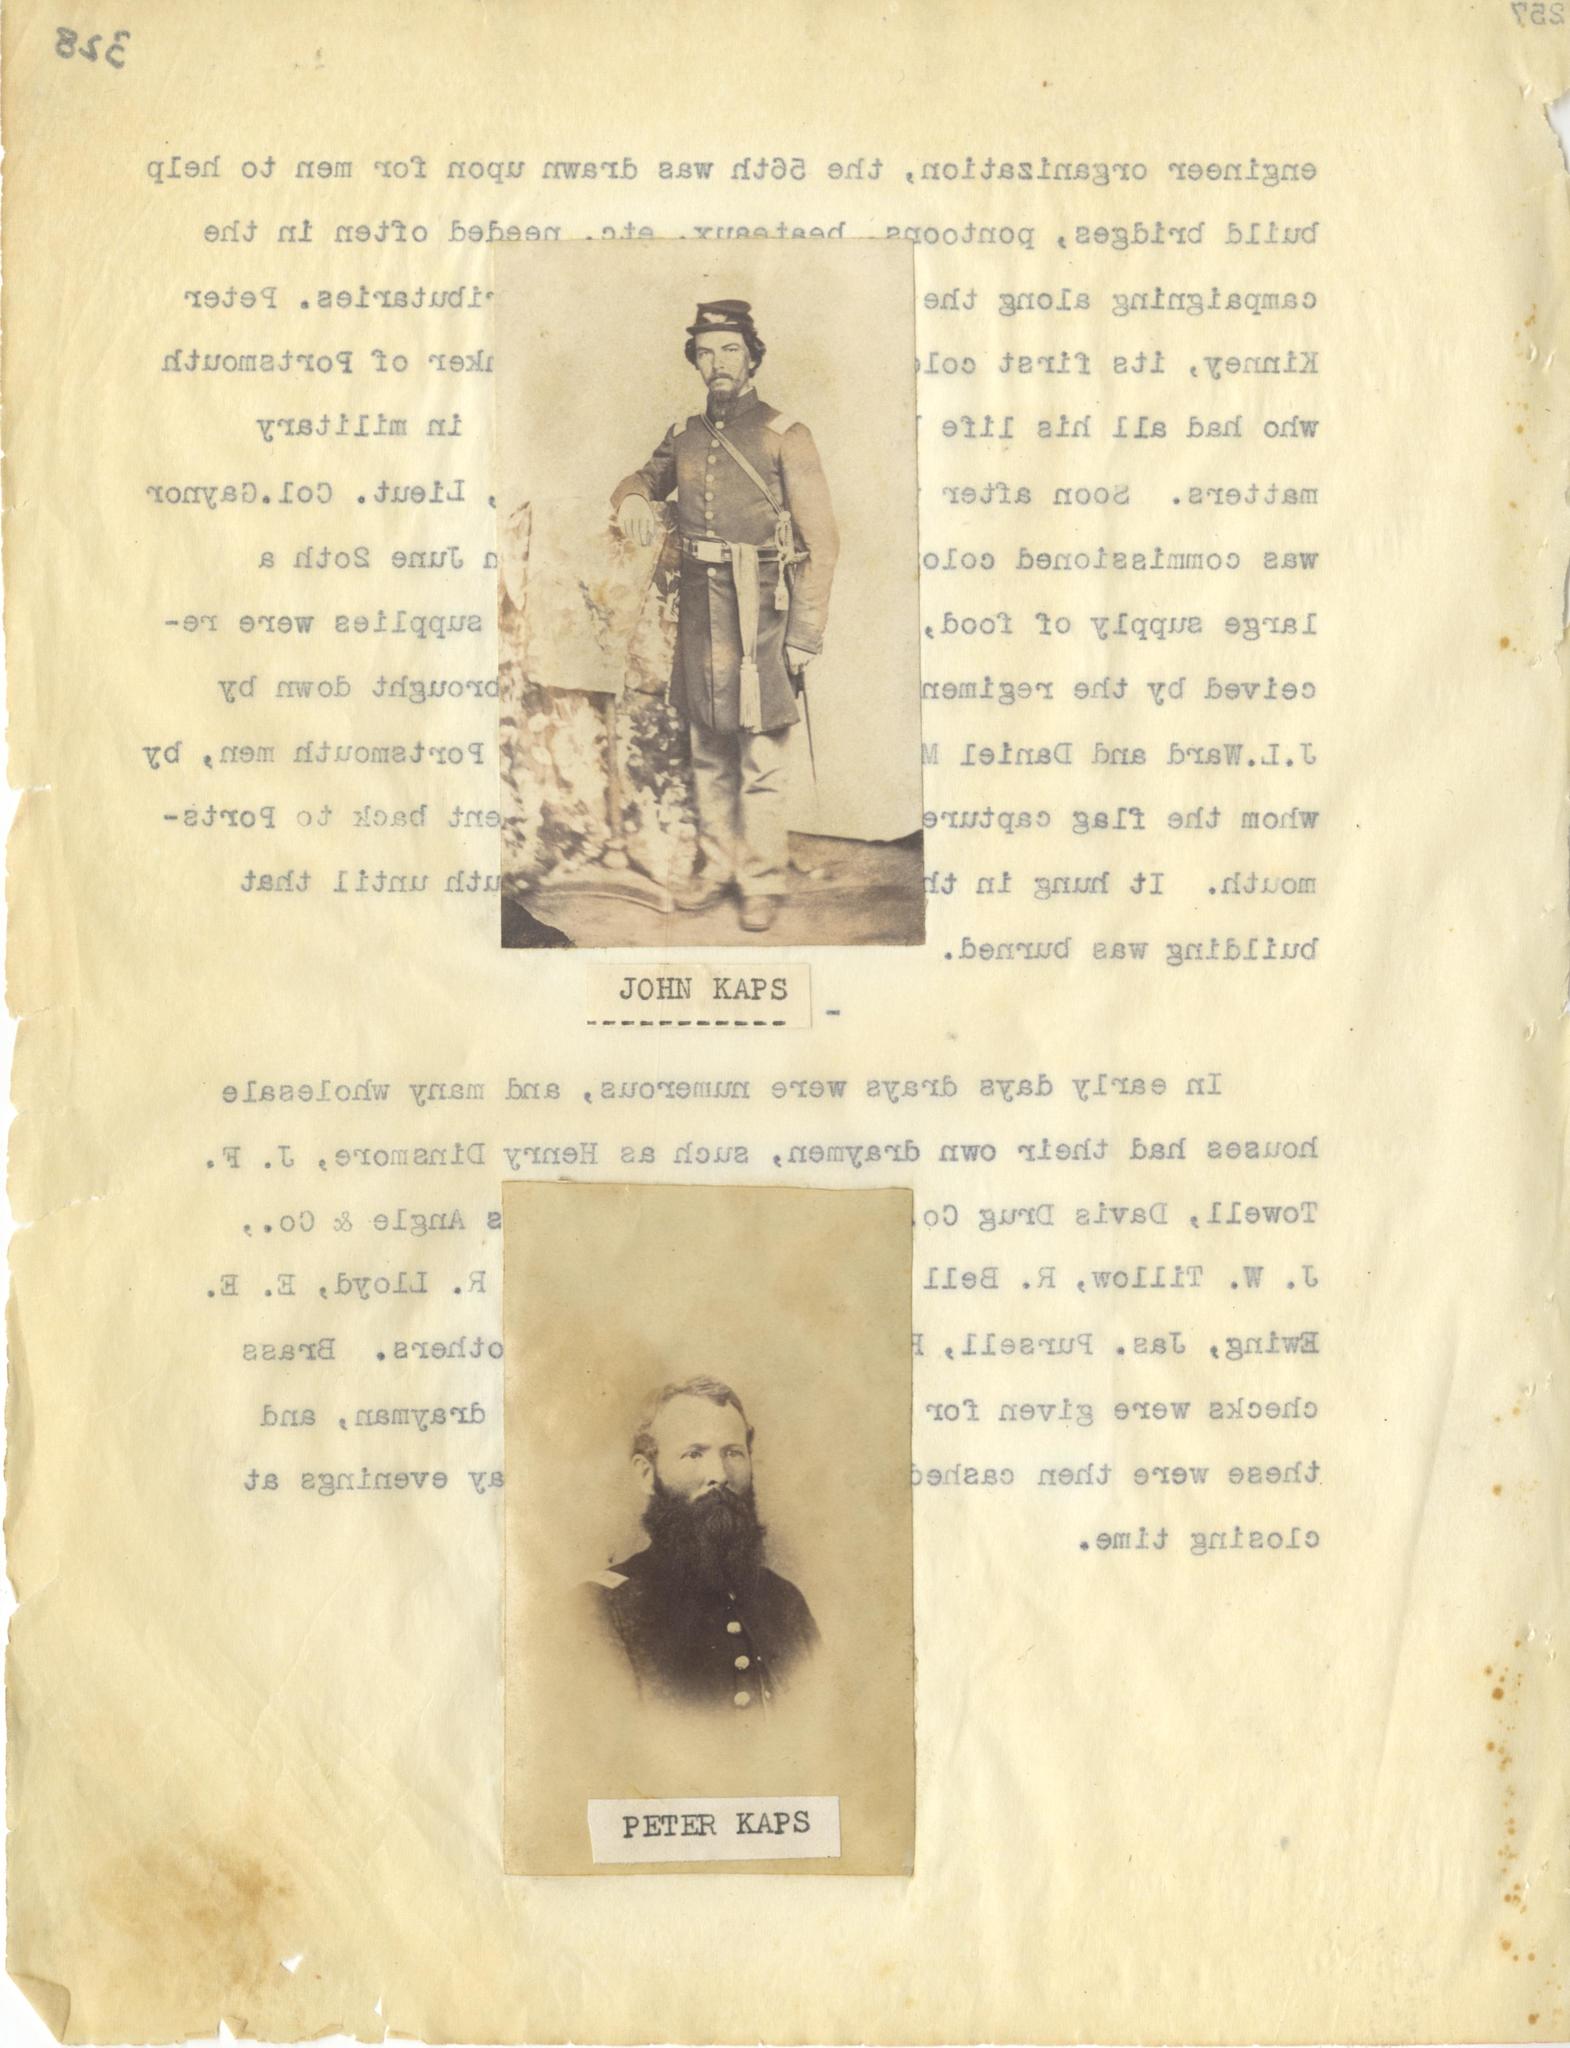 328
257
engineer organization, the 56th was drawn upon for men to help
build bridges, pontoons, beateaux, etc. needed often in the
campaigning along the ributaries. Peter
Kinney, its first colo nker of Portsmouth
who had all his life in military
matters. Soon after , Lieut. Col.Gaynor
was commissioned colo n June 20th a
large supply of food, supplies were re-
ceived by the regimen brought down by
J.L.Ward and Daniel M Portsmouth men, by
whom the flag capture ent back to Ports-
mouth. It hung in th uth until that
building was burned.
JOHN KAPS
In early days drays were numerous, and many wholesale
houses had their own draymen, such as Henry Dinsmore, J. F.
Towell, Davis Drug Co. s Angle & Co.,
J. W. Tillow, R. Bell R. Lloyd, E. E.
Ewing, Jas. Pursell, others. Brass
checks were given for drayman, and
these were then cashed ay evenings at
closing time.
PETER KAPS